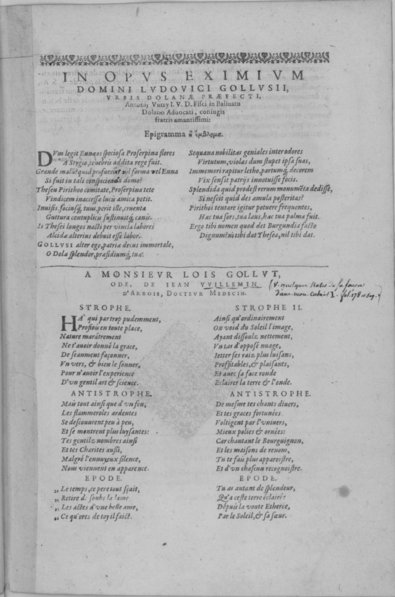 IN OPVS EXIMIVM
DOMINI LVDOVICI GOLLVSII,
VRBIS DOLANÆ PRÆFECTI,
Antonij I. V. D. Fisci in Balliuatu
Dolano Aduocati, coniugis
fratris amantissimi
Epigramma
DVm legit Ennæos speciosa Proserpina flores
A Stygio, tenebris addita rege fuit.
Grande malū! quid profuerat vel forma vel Enna
Si fuit in tali conspicienda domo?
Theseu Pirithoo comitate, Proserpina tete
Vindicem inaccesse lucis amica petit.
Inuisis, sociusq́; tuus perit illo, cruenta
Guttura centuplicis sustinuitq́; canis.
Is Thesei longas nactus per vincla labores
Alcidæ alterius debuit esse labor.
GOLLVSI alter ego, patriæ decus immortale,
O Dola splendor, præsidiumq́; tuæ.
Sequana nobilitas geniales interodores
Virtutum, violas dum stupet ipsa suas,
Immemori rapitur letho, partumq́; decorem
Vix sensit patrijs innotuisse focis.
Splendida quid prodest rerum monumēta dedisse,
Si nescit quid des amula posteritas?
Pirithoi tentare igitur potuere frequentes,
Hac tua sors, tua laus, hac tua palma fuit.
Ergo tibi nomen quod det Burgundia facto
Dignum? ni tibi dat Thesea, nil tibi dat.
A MONSIEVR LOIS GOLLVT,
ODE, DE IEAN VVILLEMIN,
D'ARBOIS, DOCTEVR MEDECIN.
STROPHE.
HA' qui par trop pudemment,
Prostou en toute place,
Nature maidrement
Ne t'auoir donné la grace,
De sçamment façonner,
Vn vers, & bien le sonner,
Pour n'auoir l'experience
D'vn gentil art & science.
ANTISTROPHE.
Mais tout ainsi que d'vn feu,
Les flammeroles ardentes
Se descouurent peu à peu,
Et se monstrent plus luysantes:
Tes gentilz nombres ainsi
Et tes Charites aussi,
Malgré l'ennuyeux silence,
Nous viennent en apparence.
EPODE.
Le temps, ce pere tout sçait,
Retire d. soubs la lame
Les actes d'vne belle ame,
Ce qu'ores de toy il faict.
STROPHE II.
Ainsi qu'ordinairement
On void du Soleil l'image,
Ayant dissoulz, nettement,
Vn tas d'opposé nuage,
Ietter ses raiz plus luisans,
Proffitables, & plaisants,
Et auec sa face ronde
Eclairer la terre & l'onde.
ANTISTROPHE.
De mesme tes chants diuers,
Et tes graces fortunées
Voltigent par l'vniuers,
Mieux polies & ornées:
Car chantant le Bourguignon,
Et les maisons de renom,
Tu te fais plus apparoistre,
Et d'vn chascun recognoistre.
EPODE.
Tu as autant de splendeur,
Qu'a ceste terre éclairée
Depuis la voute Etherée,
Par le Soleil, & sa sœur.